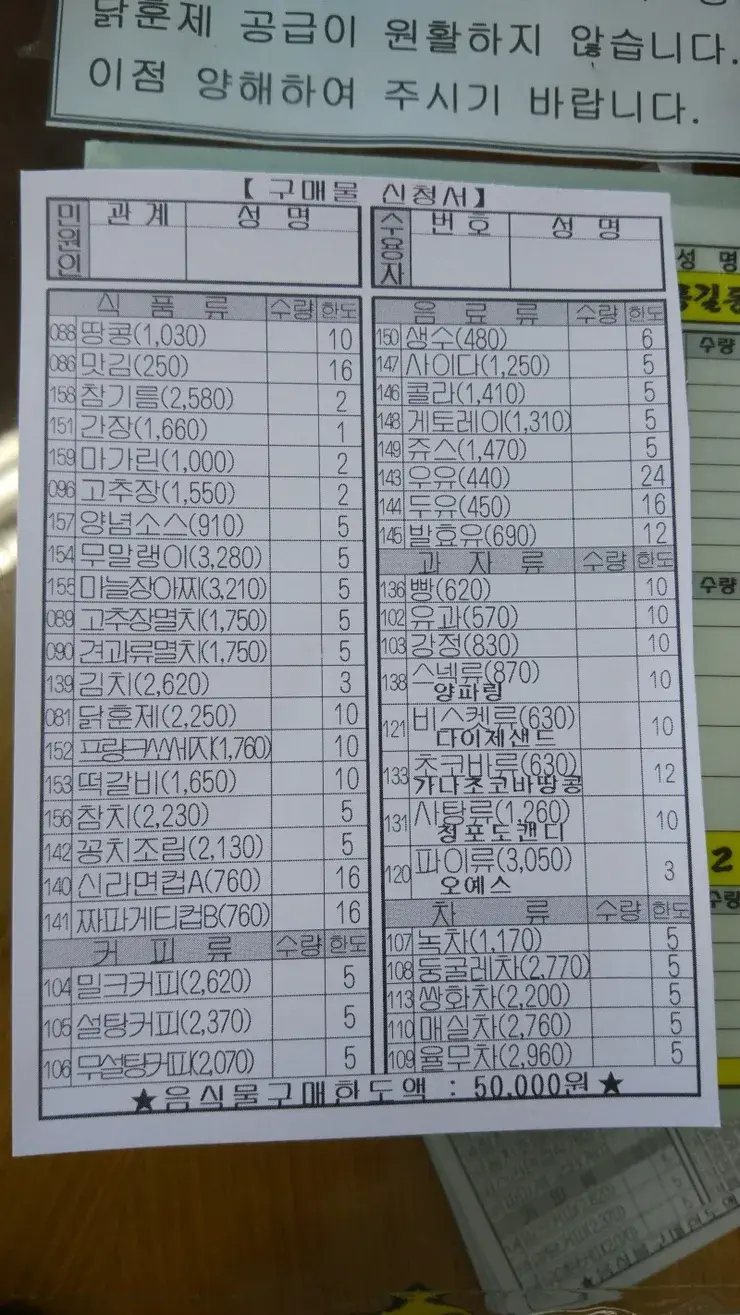 닭훈제 공급이 원활하지 않습니다.
이점 양해하여 주시기 바랍니다.
【 구매물 신청서】
민원인 관계 성명
수용자 번호 성명
식품류 수량 한도
088 땅콩(1,030) 10
086 맛김(250) 16
158 참기름(2,580) 2
151 간장(1,660) 1
159 마가린(1,000) 2
096 고추장(1,550) 2
157 양념소스(910) 5
154 무말랭이(3,280) 5
155 마늘장아찌(3,210) 5
089 고추장멸치(1,750) 5
090 견과류멸치(1,750) 5
139 김치(2,620) 3
081 닭훈제(2,250) 10
152 프랑크소세지(1,760) 10
153 떡갈비(1,650) 10
156 참치(2,230) 5
142 꽁치조림(2,130) 5
140 신라면컵A(760) 16
141 짜파게티컵B(760) 16
커피류 수량 한도
104 밀크커피(2,620) 5
105 설탕커피(2,370) 5
106 무설탕커피(2,070) 5
음료류 수량 한도
150 생수(480) 6
147 사이다(1,250) 5
146 콜라(1,410) 5
148 게토레이(1,310) 5
149 쥬스(1,470) 5
143 우유(440) 24
144 두유(450) 16
145 발효유(690) 12
과자류 수량 한도
136 빵(620) 10
102 유과(570) 10
103 강정(830) 10
138 스넥류(870) 10
양파링
121 비스켓류(630) 10
다이제샌드
133 초코바류(630) 12
가나초코바땅콩
131 사탕류(1,260) 10
청포도캔디
120 파이류(3,050) 3
오예스
차류 수량 한도
107 녹차(1,170) 5
108 둥굴레차(2,770) 5
113 쌍화차(2,200) 5
110 매실차(2,760) 5
109 율무차(2,960) 5
★음식물구매한도액 : 50,000원★
성 명
길동
수량
수량
2
수량
★음식물구매한도액